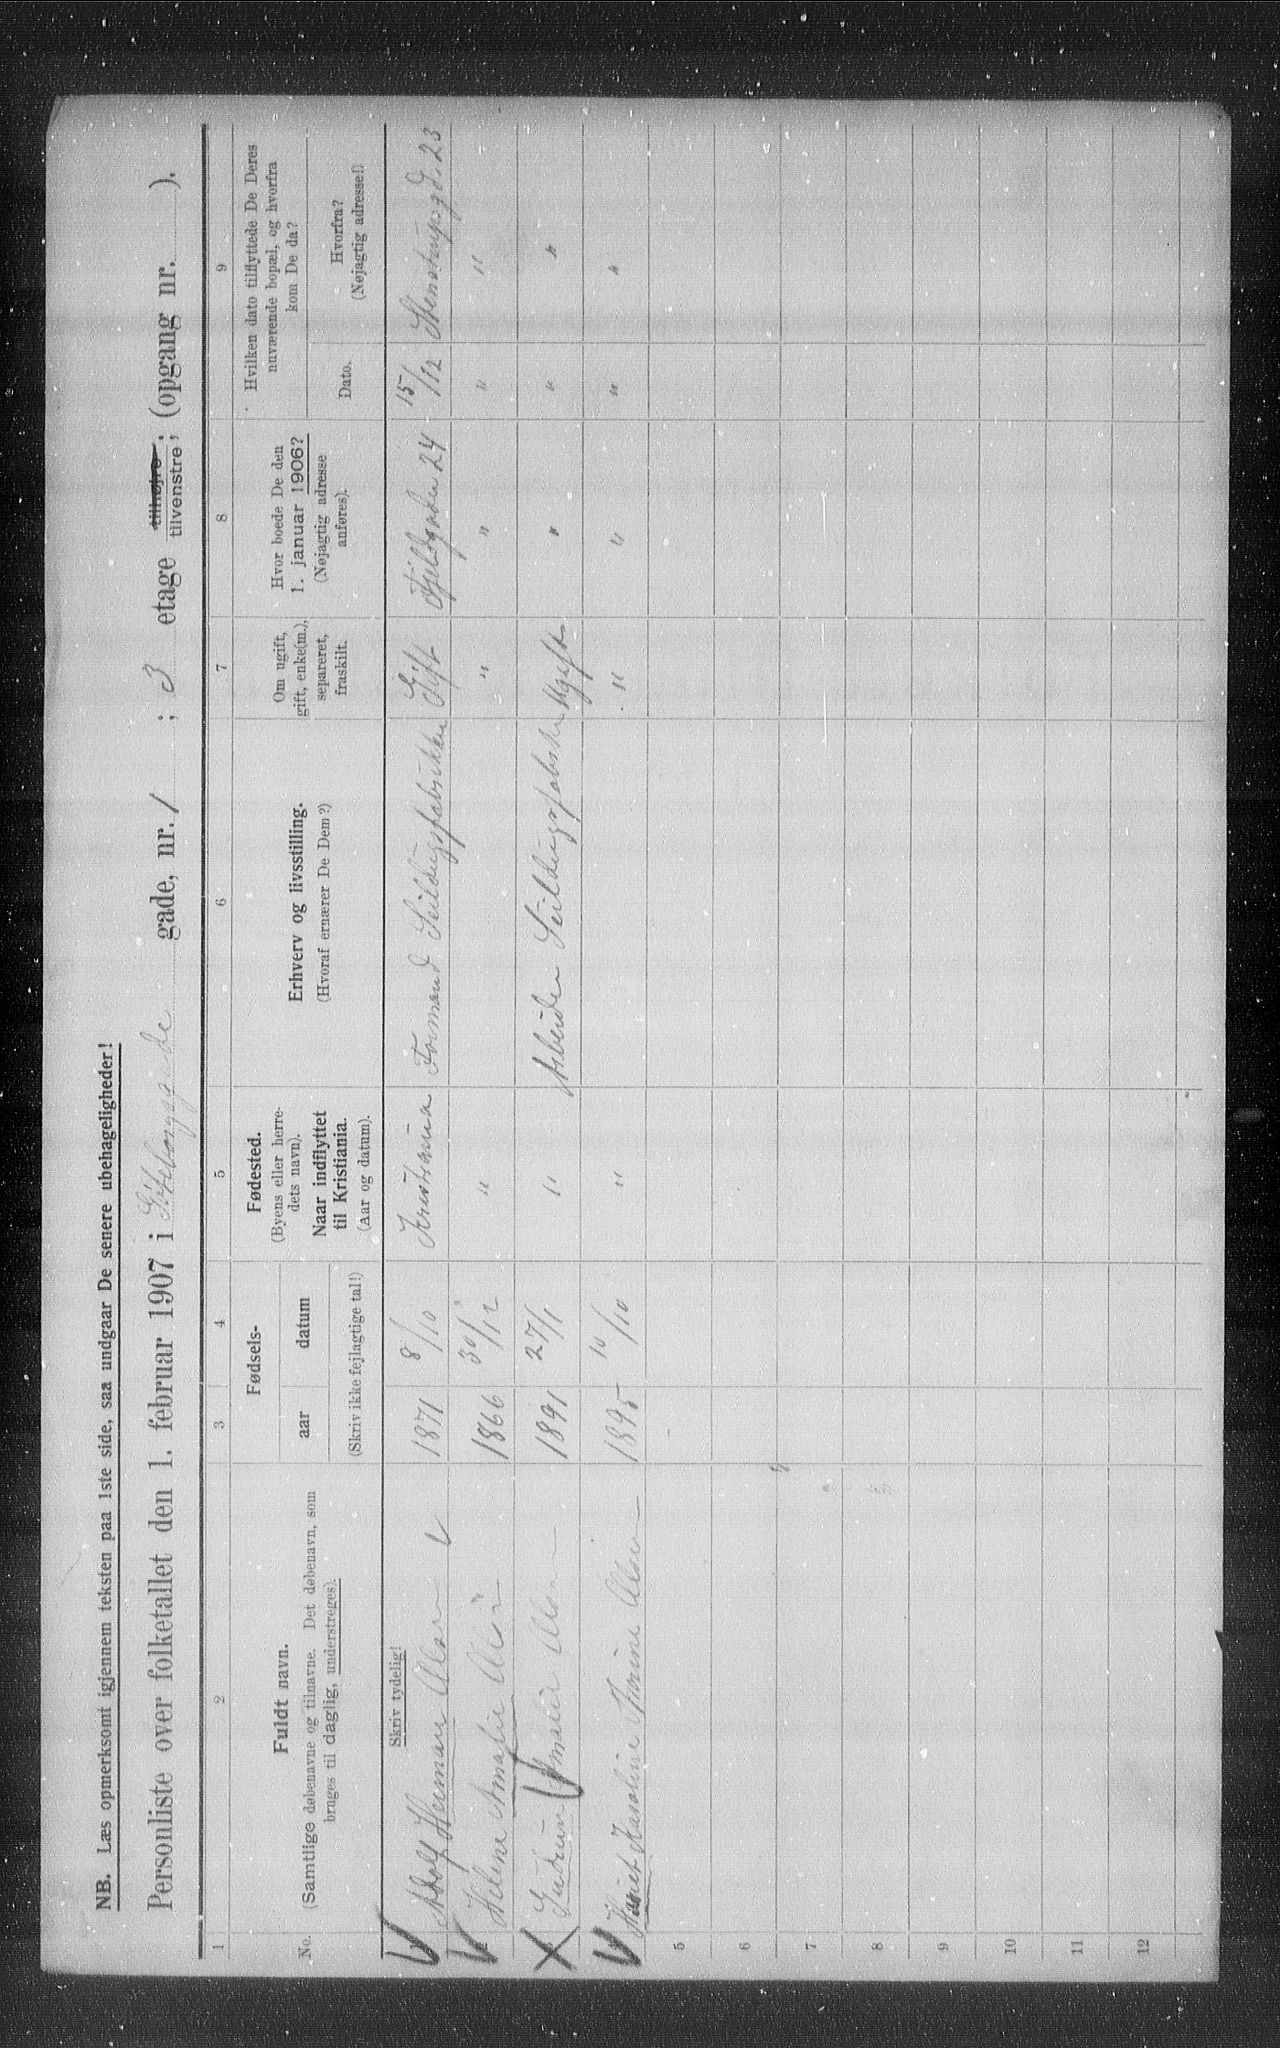 NB. Læs opmerksomt igjennem teksten paa 1ste side, saa undgaar De senere ubehageligheder!
Personliste over folketallet den 1. februar 1907 i Göteborggade gade, nr. 1 ; 3 etage tilhøjre, tilvenstre; (opgang nr. ).
1 2 3 4 5 6 7 8 9
No.
Fuldt navn.
(Samtlige døbenavne og tilnavne. Det døbenavn, som
bruges til daglig, understreges).
Fødsels-
aar datum
(Skriv ikke fejlagtige tal!)
Fødested.
(Byens eller herre-
dets navn).
Naar indflyttet
til Kristiania.
(Aar og datum).
Erhverv og livsstilling.
(Hvoraf ernærer De Dem?)
Om ugift,
gift, enke(m.),
separeret,
fraskilt.
Hvor boede De den
1. januar 1906?
(Nøjagtig adresse
anføres).
Hvilken dato tilflyttede De Deres
nuværende bopæl, og hvorfra
kom De da?
Dato.
Hvorfra?
(Nøjagtig adresse!)
Skriv tydelig!
Adolf Herman Olsen 1871 8/10 Kristiania Formand Seildugsfabrikken Gift Fjeldgaden 24 15/12 Stenstrupsgd. 23
Helene Amalie Olsen 1866 30/12 " " " " "
Gudrun Amalie Olsen 1891 27/1 " Arbeider Seildugsfabriken Ugift " " "
Karoline Olsen 1895 10/10 " " " " "
5
6
7
8
9
10
11
12